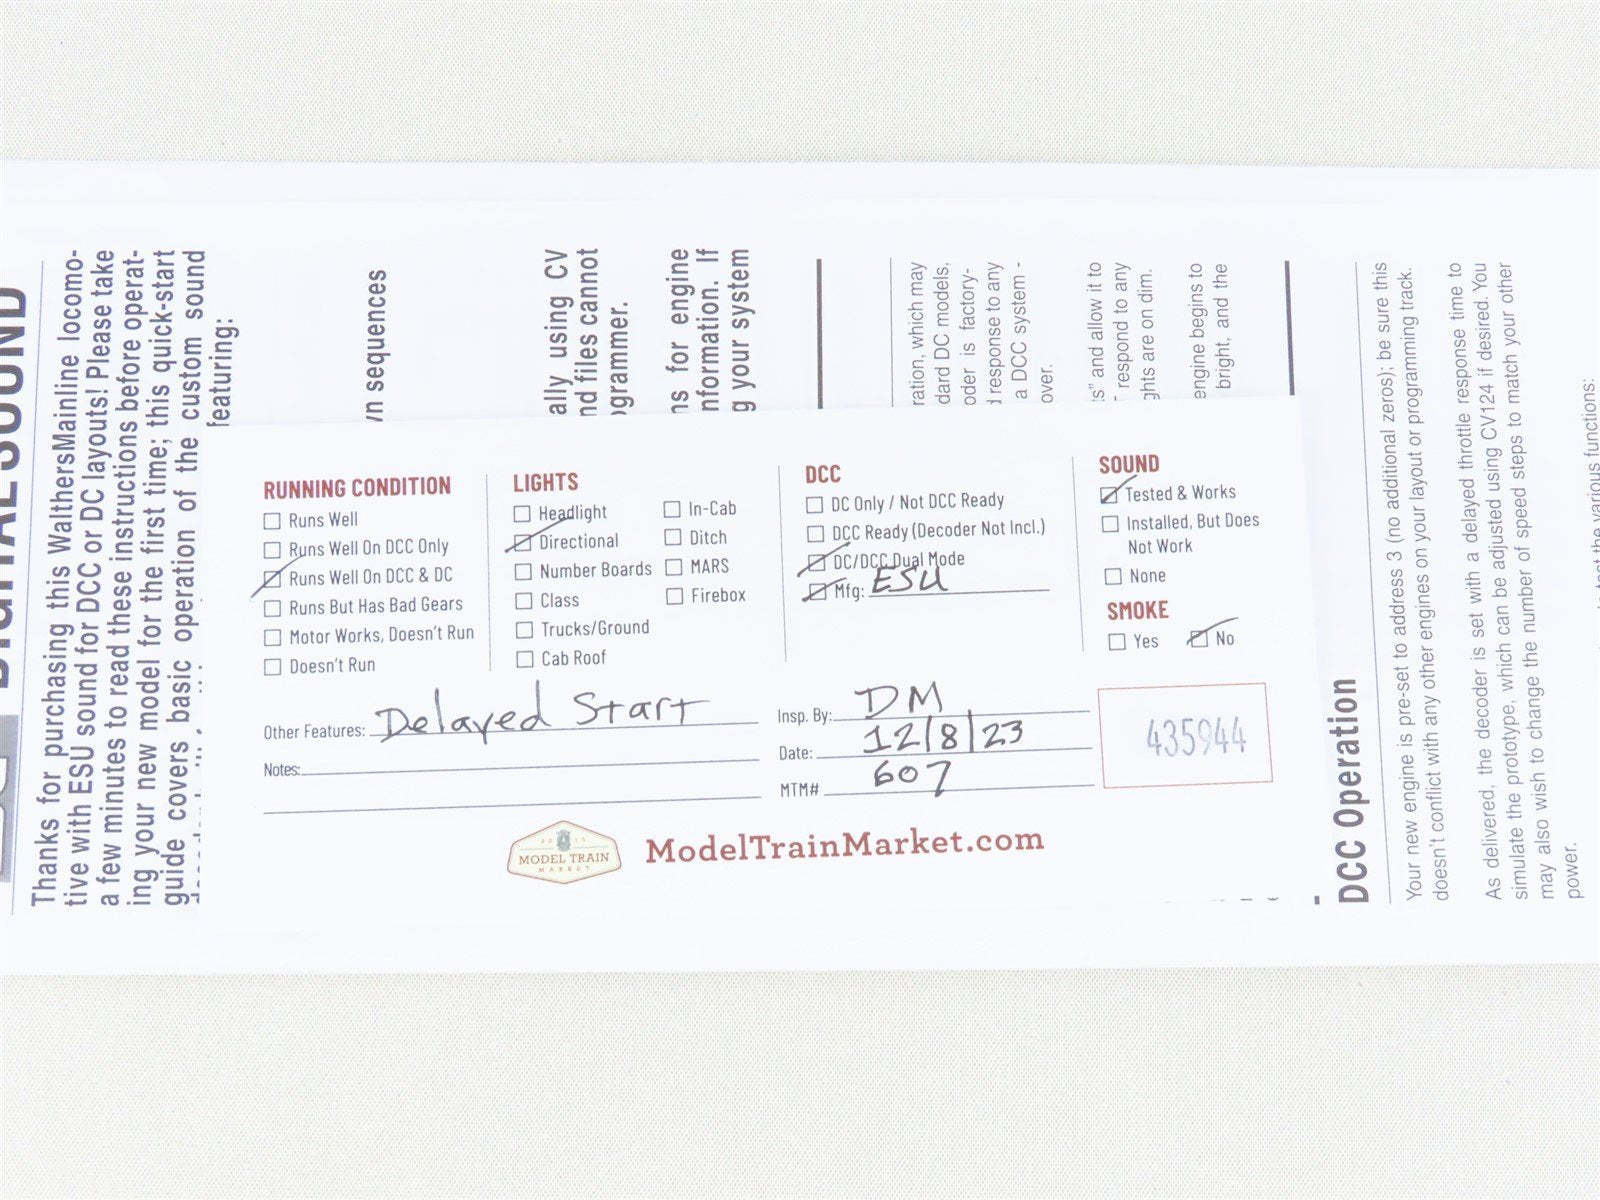 DIGITAL SOUND
Thanks for purchasing this WalthersMainline locomo-
tive with ESU sound for DCC or DC layouts! Please take
a few minutes to read these instructions before operat-
ing your new model for the first time; this quick-start
guide covers basic operation of the custom sound
featuring:
wn sequences
ally using CV
nd files cannot
ogrammer.
ns for engine
nformation. If
g your system
ration, which may
dard DC models,
oder is factory-
d response to any
a DCC system -
over.
s" and allow it to
respond to any
ghts are on dim.
engine begins to
bright, and the
DCC Operation
Your new engine is pre-set to address 3 (no additional zeros); be sure this
doesn't conflict with any other engines on your layout or programming track.
As delivered, the decoder is set with a delayed throttle response time to
simulate the prototype, which can be adjusted using CV124 if desired. You
may also wish to change the number of speed steps to match your other
power.
test the various functions:
RUNNING CONDITION
Runs Well
Runs Well On DCC Only
Runs Well On DCC & DC
Runs But Has Bad Gears
Motor Works, Doesn't Run
Doesn't Run
LIGHTS
Headlight
Directional
Number Boards
Class
Trucks/Ground
Cab Roof
In-Cab
Ditch
MARS
Firebox
DCC
DC Only / Not DCC Ready
DCC Ready (Decoder Not Incl.)
DC/DCC Dual Mode
Mfg: ESU
SOUND
Tested & Works
Installed, But Does
Not Work
None
SMOKE
Yes No
Other Features: Delayed Start
Notes:
Insp. By: DM
Date: 12/8/23
MTM# 607
435944
2015
MODEL TRAIN
MARKET
ModelTrainMarket.com